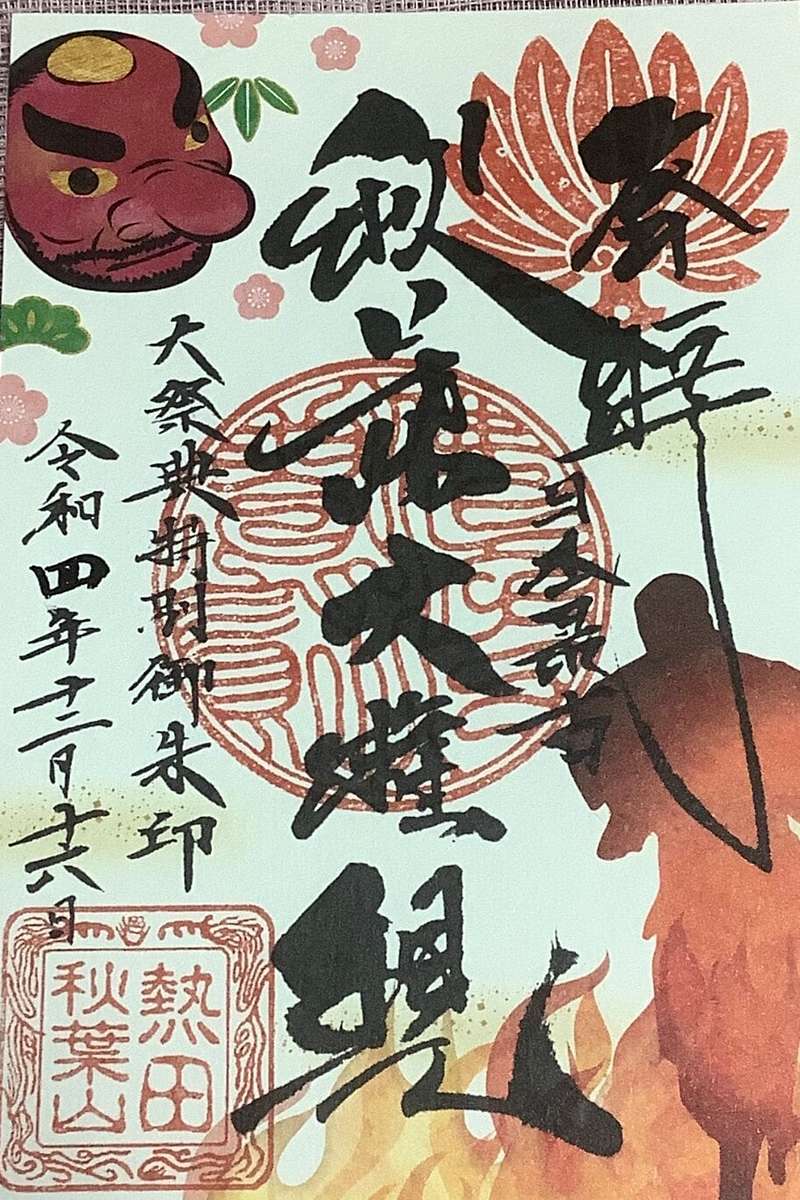 奉拝
日本最古
秋葉大権現
大祭典特別御朱印
令和四年十二月十六日
熱田
秋葉山